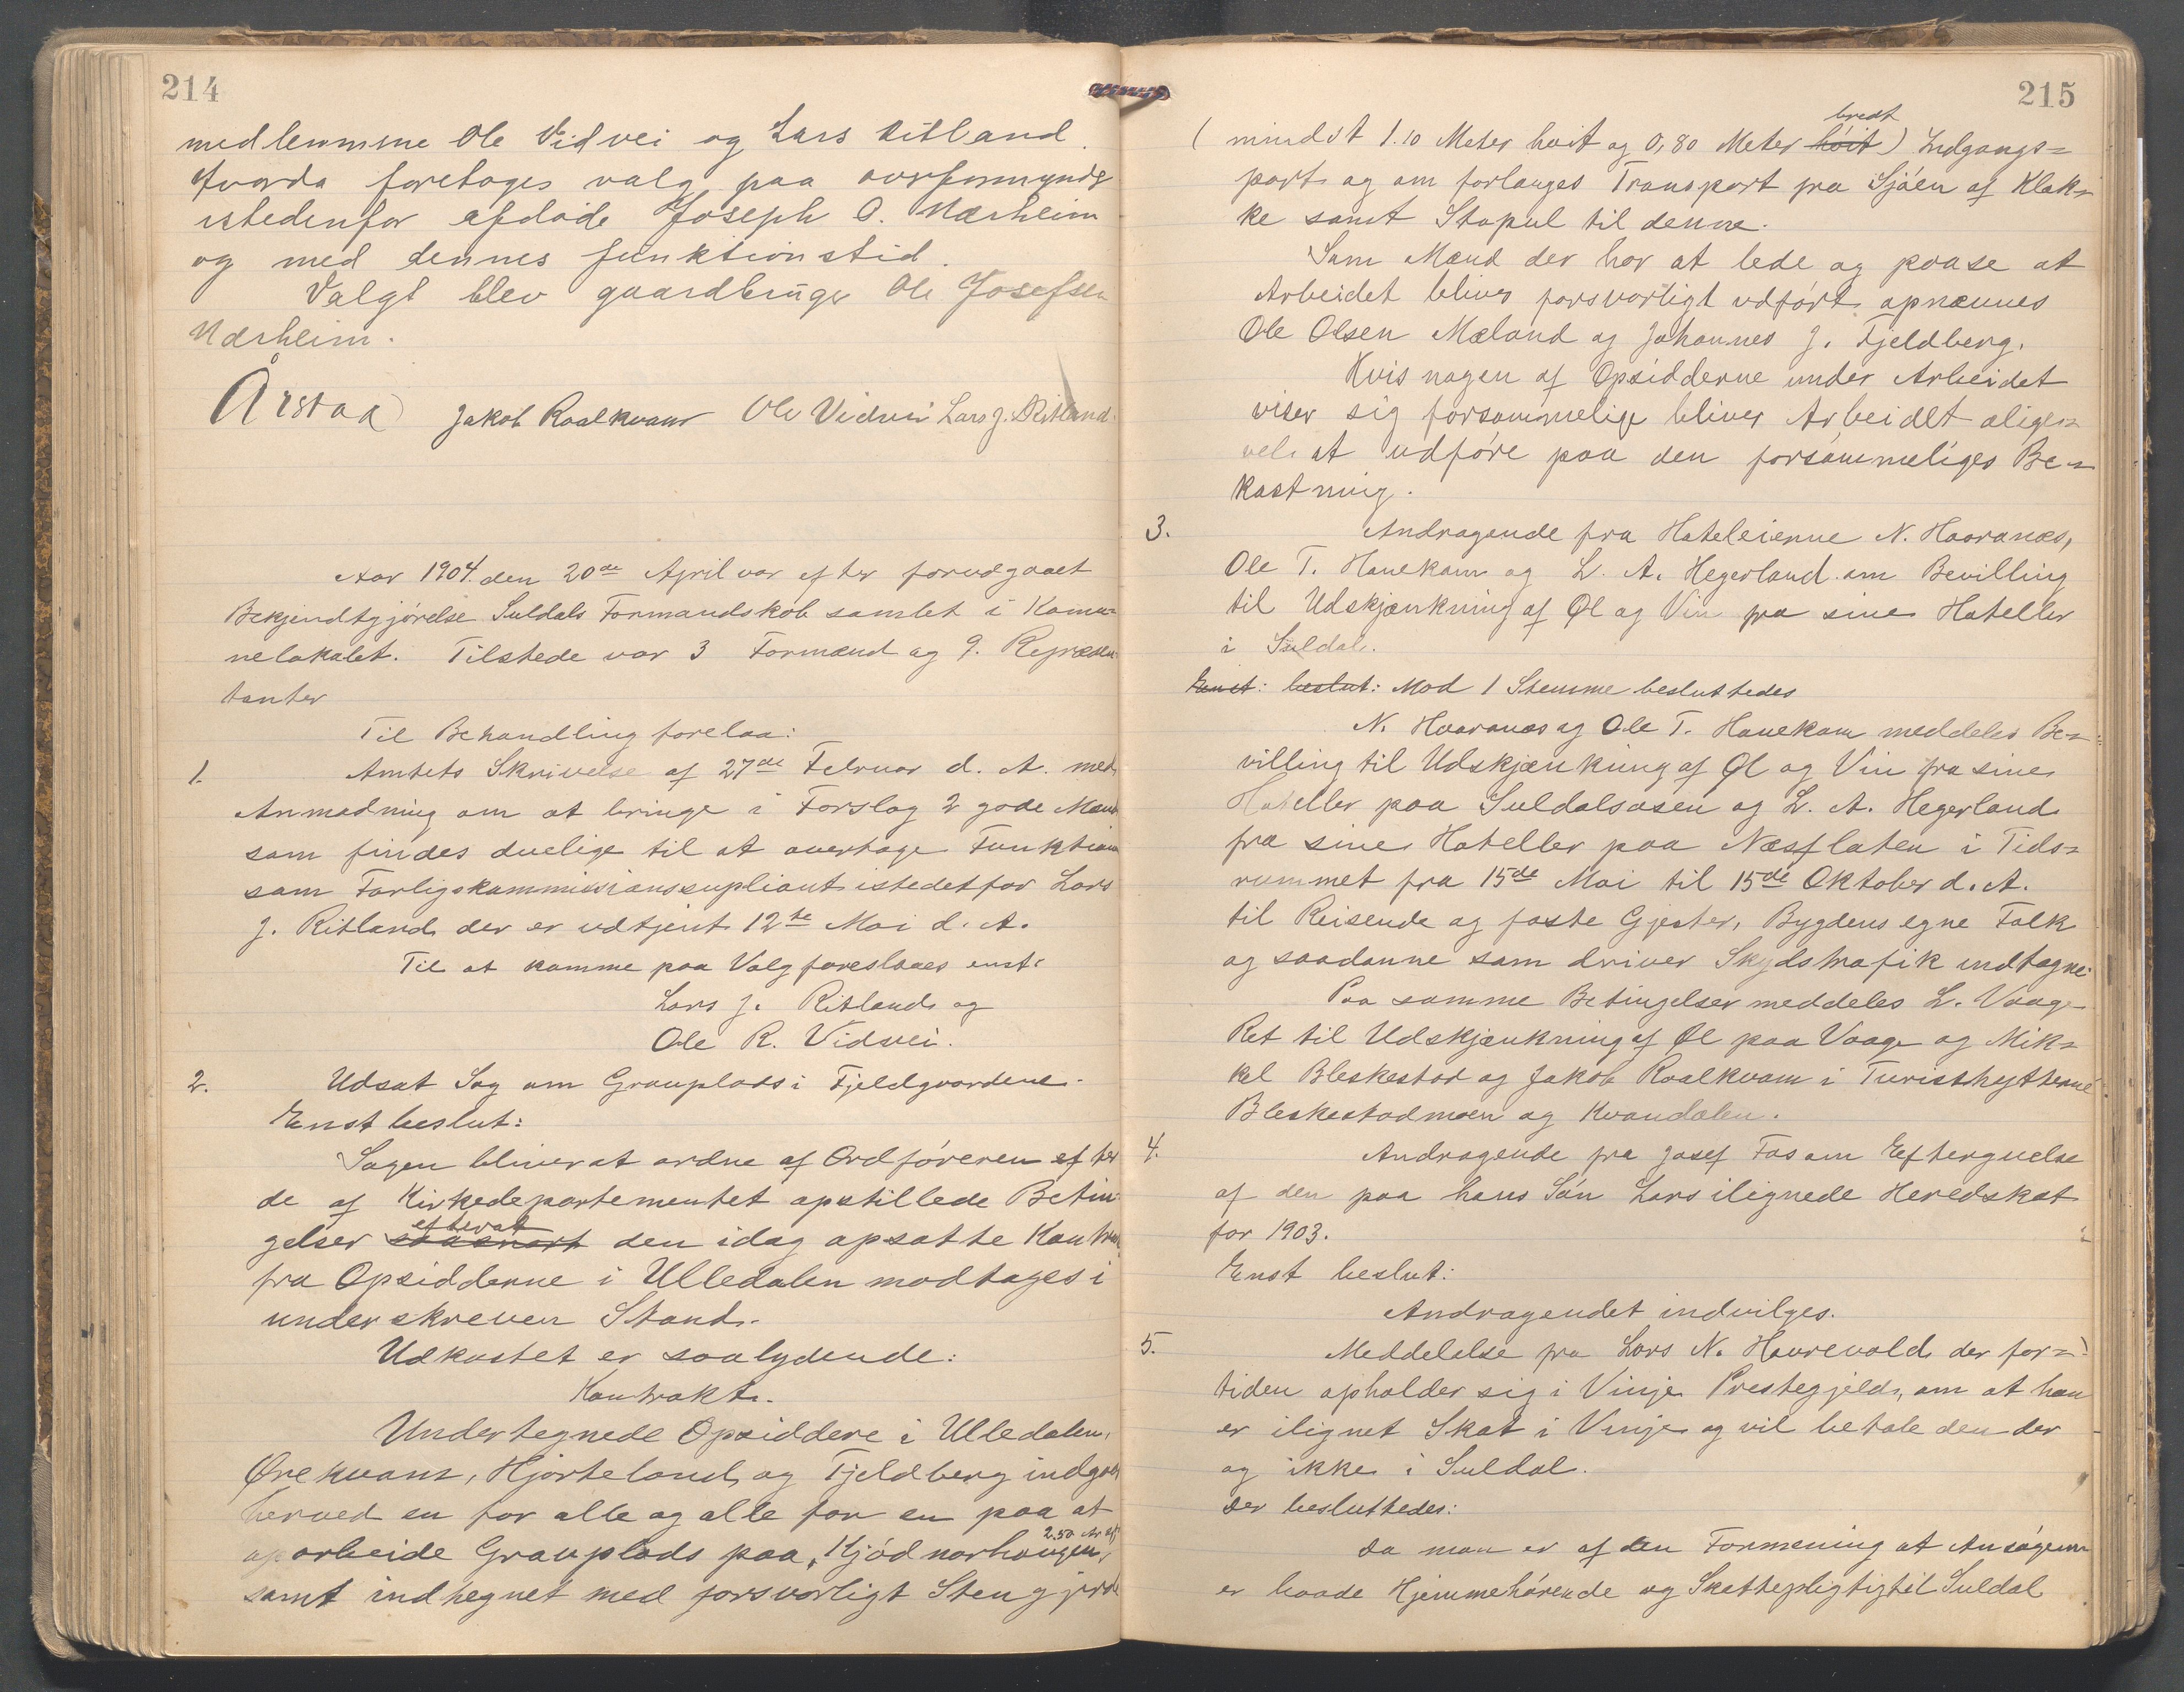 214
medlemmene Ole Vidvei og Lars Ritland.
Hvorda foretages valg paa overformynder
istedenfor afdöde Joseph O. Mærheim
og med dennes funktionstid.
Valgt blev gaardbruger Ole Josefsen
Mærheim.
Årstaa Jakob Roalkvam Ole Vidvei Lars J. Ritland.
Aar 1904 den 20de April var efter forudgaaet
Bekjendtgjörelse Suldals Formandskab samlet i Komu-
nelokalet. Tilstede var 3 Formænd og 9. Repræsen-
tanter
Til Behandling forelaa:
1. Amtets Skrivelse af 27de Februar d. A. med
Anmodning om at bringe i Forslag 2 gode Mænd
som findes duelige til at overtage Funktion
som Forligskommissionssupliant istedetfor Lars
J. Ritland der er udtjent 12te Mai d. A.
Til at komme paa Valg foreslaaes enst.
Lars J. Ritland og
Ole R. Vidvei.
2. Udsat Sag om Gravplads i Fjeldgaardene.
Enst beslut:
Sagen bliver at ordne af Ordföreren efter
de af Kirkedepartementet opstillede Betin-
gelser saasnart efterat den idag opsatte Kontrakt
fra Opsidderne i Ulledalen modtages i
underskreven Stand.
Udkastet er saalydende:
Kontrakt.
Undertegnede Opsiddere i Ulledalen,
Ørekvam, Hjorteland og Fjeldberg indgaar
herved en for alle og alle for en paa at
oparbeide Gravplads paa „Kjödnarhaugen, 2.50 Ar
samt indhegnet med forsvarligt Stengjerde
215
(mindst 1.10 Meter hoit og 0,80 Meter höit bredt) Indgangs=
port og om forlanges Transport fra Sjöen af Klok=
ke samt Stapul til denne.
Som Mænd der har at lede og paase at
Arbeidet bliver forsvarligt udfört opnævnes
Ole Olsen Mæland og Johannes J. Fjeldberg.
Hvis nogen af Opsidderne under Arbeidet
viser sig forsömmelige bliver Arbeidet alige=
vel at udföre paa den forsömmeliges Be=
kostning.
3. Andragende fra Hoteleierne N. Hoaranæs,
Ole T. Hanekam og L. A. Hegerland om Bevilling
til Udskjænkning af Øl og Vin fra sine Hoteller
i Suldal.
Enst: beslut: Mod 1 Stemme besluttedes
N. Hoaranæs og Ole T. Hanekam meddeles Be=
villing til Udskjænkning af Øl og Vin fra sine
Hoteller paa Suldalsosen og L. A. Hegerland
fra sine Hoteller paa Næsflaten i Tids=
rummet fra 15de Mai til 15de Oktober d. A.
til Reisende og faste Gjester, Bygdens egne Folk
og saadanne som driver Skydstrafik undtagne.
Paa samme Betingelser meddeles L. Vaage
Ret til Udskjænkning af Øl paa Vaage og Mik=
kel Bleskestad og Jakob Roalkvam i Turisthytterne
Bleskestadmoen og Kvandalen.
4. Andragende fra Josef Fos om Eftergivelse
af den paa hans Sön Lars ilignede Heredskat
for 1903.
Enst beslut:
Andragendet indvilges.
5. Meddelelse fra Lars N. Havrevold der for=
tiden opholder sig i Vinje Prestegjeld, om at han
er ilignet Skat i Vinje og vil betale den der
og ikke i Suldal.
Der besluttedes:
Da man er af den Formening at Ansögeren
er baade Hjemmehörende og Skattepligtig til Suldal